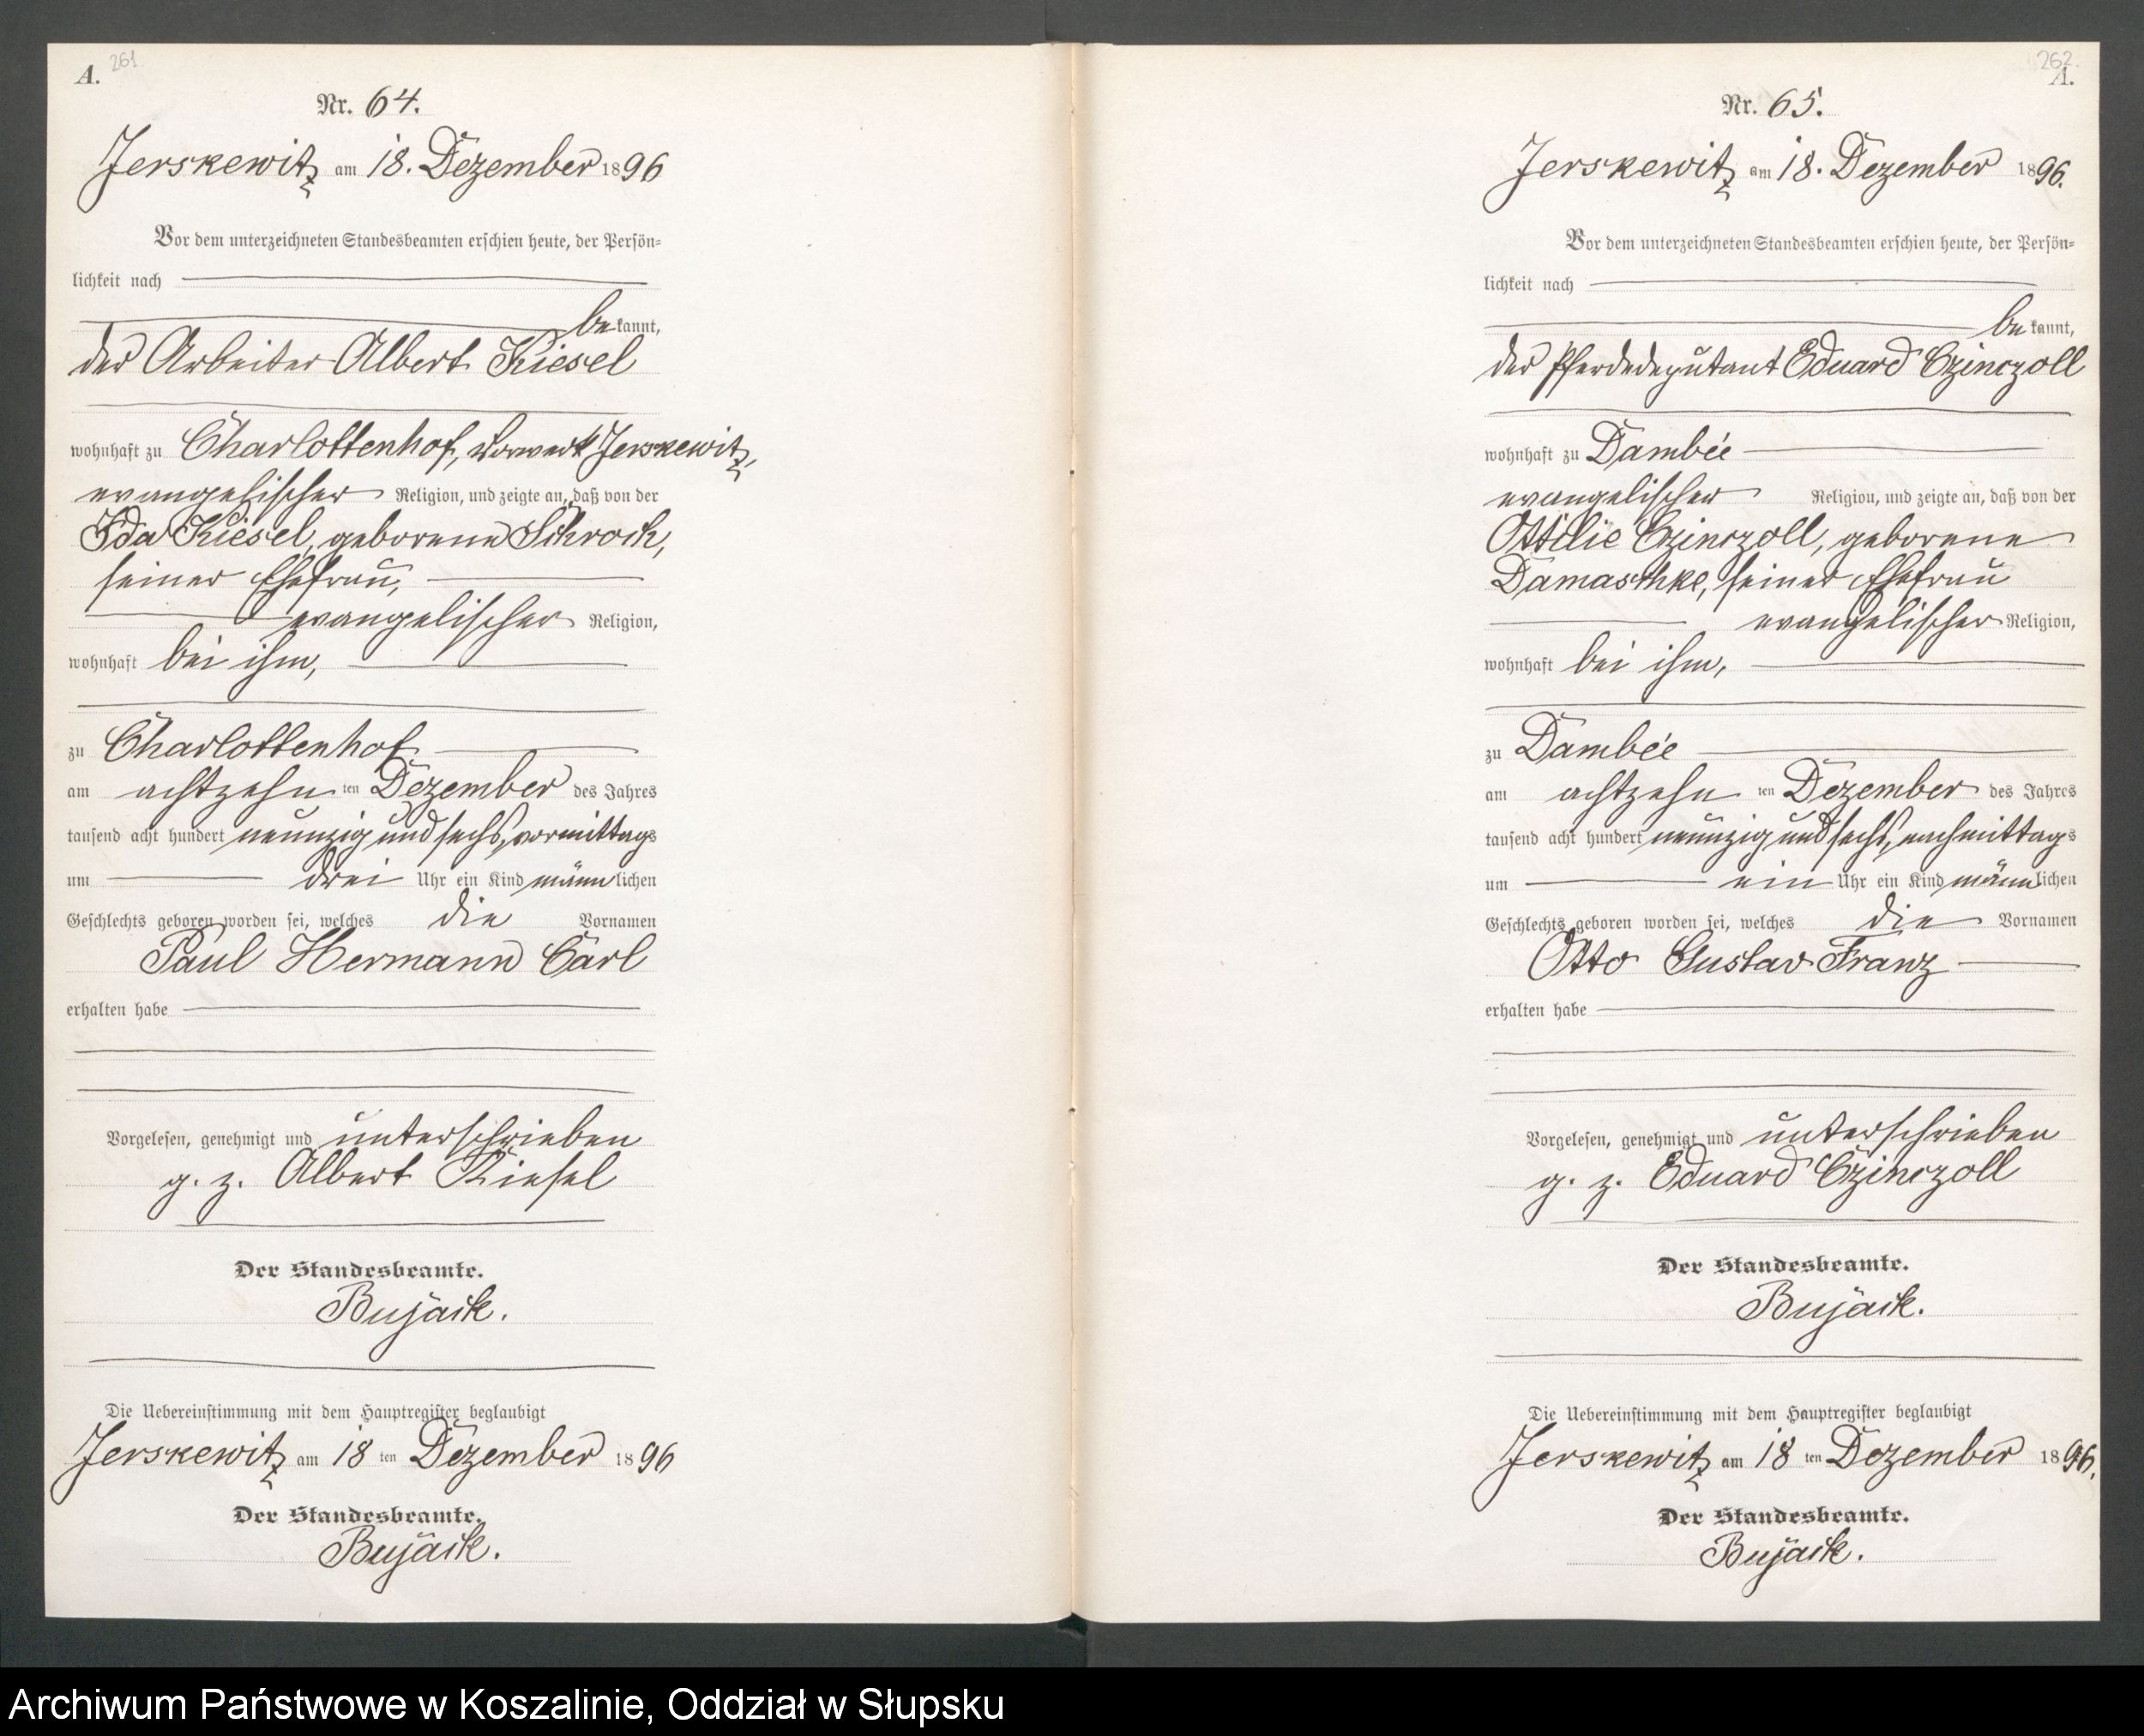 A. 261
Nr. 64.
Jerskewitz am 18. Dezember 1896
Vor dem unterzeichneten Standesbeamten erschien heute, der Persön-
lichkeit nach
bekannt,
der Arbeiter Albert Kiesel
wohnhaft zu Charlottenhof, Vorwerk Jerskewitz,
evangelischer Religion, und zeigte an, daß von der
Ida Kiesel, geborene Schrock,
seiner Ehefrau,
evangelischer Religion,
wohnhaft bei ihm,
zu Charlottenhof
am achtzehn ten Dezember des Jahres
tausend acht hundert neunzig und sechs, vormittags
um drei Uhr ein Kind männlichen
Geschlechts geboren worden sei, welches die Vornamen
Paul Hermann Carl
erhalten habe
Vorgelesen, genehmigt und unterschrieben
g. z. Albert Kiesel
Der Standesbeamte.
Bujack.
Die Uebereinstimmung mit dem Hauptregister beglaubigt
Jerskewitz am 18 ten Dezember 1896
Der Standesbeamte.
Bujack.
262.
A.
Nr. 65.
Jerskewitz am 18. Dezember 1896.
Vor dem unterzeichneten Standesbeamten erschien heute, der Persön-
lichkeit nach
bekannt,
der Pferdedeputant Eduard Czinczoll
wohnhaft zu Dambée
evangelischer Religion, und zeigte an, daß von der
Ottilie Czinczoll, geborene
Damaschke, seiner Ehefrau
evangelischer Religion,
wohnhaft bei ihm,
zu Dambée
am achtzehn ten Dezember des Jahres
tausend acht hundert neunzig und sechs, nachmittags
um ein Uhr ein Kind männlichen
Geschlechts geboren worden sei, welches die Vornamen
Otto Gustav Franz
erhalten habe
Vorgelesen, genehmigt und unterschrieben
g. z. Eduard Czinczoll
Der Standesbeamte.
Bujack.
Die Uebereinstimmung mit dem Hauptregister beglaubigt
Jerskewitz am 18 ten Dezember 1896.
Der Standesbeamte.
Bujack.
Archiwum Państwowe w Koszalinie, Oddział w Słupsku